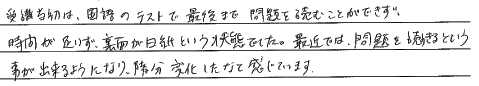 受講当初は、国語のテストで最後まで問題を読むことができず、
時間が足りず、裏面が白紙という状態でした。最近では、問題を解きるという
事が出来るようになり、随分変化したなと感じています。